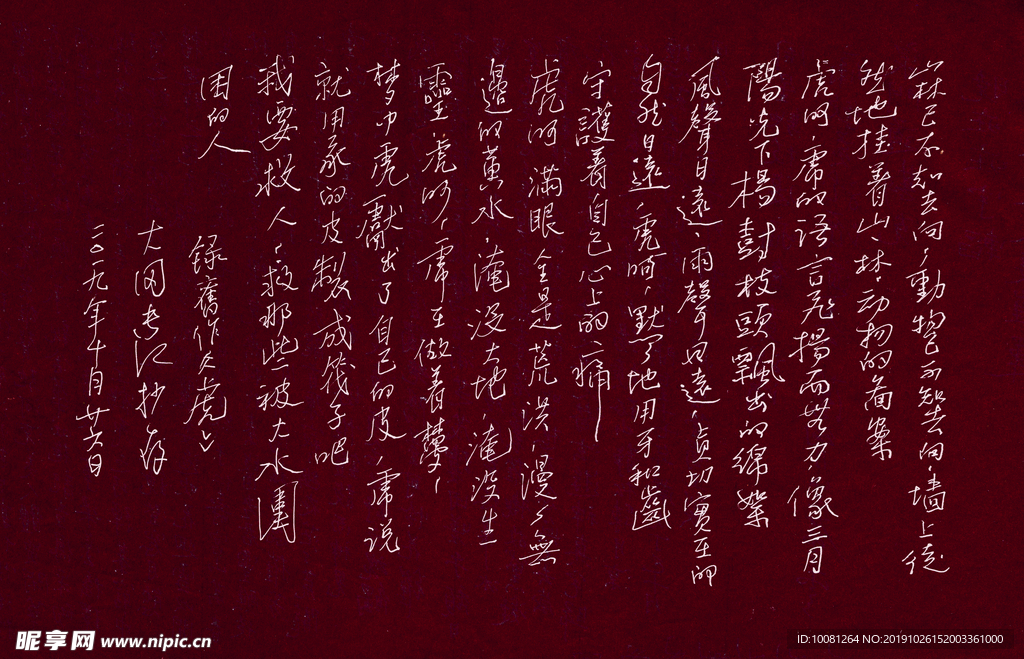 林已不知去向，動物已不知去向，墙上徒
然地挂着山、林、动物的图案
虎呵，虎的语言飛揚而無力，像三月
陽光下楊樹枝頭飄出的綿絮
風聲日遠，雨聲日遠，真切實在的
自然日遠，虎呵，默默地用牙和齒
守護着自己心上的痛
虎呵 滿眼全是荒洪，漫漫無
邊的黄水，淹没大地，淹没生
靈，虎呵，虎在做着夢，
梦中虎獻出了自己的皮，虎说
就用我的皮製成筏子吧
我要救人，救那些被大水圍
困的人
録舊作《虎》
大同 抄存
二〇一九年十月廿六日
昵享网 www.nipic.cn
ID:10081264 NO:20191026152003361000